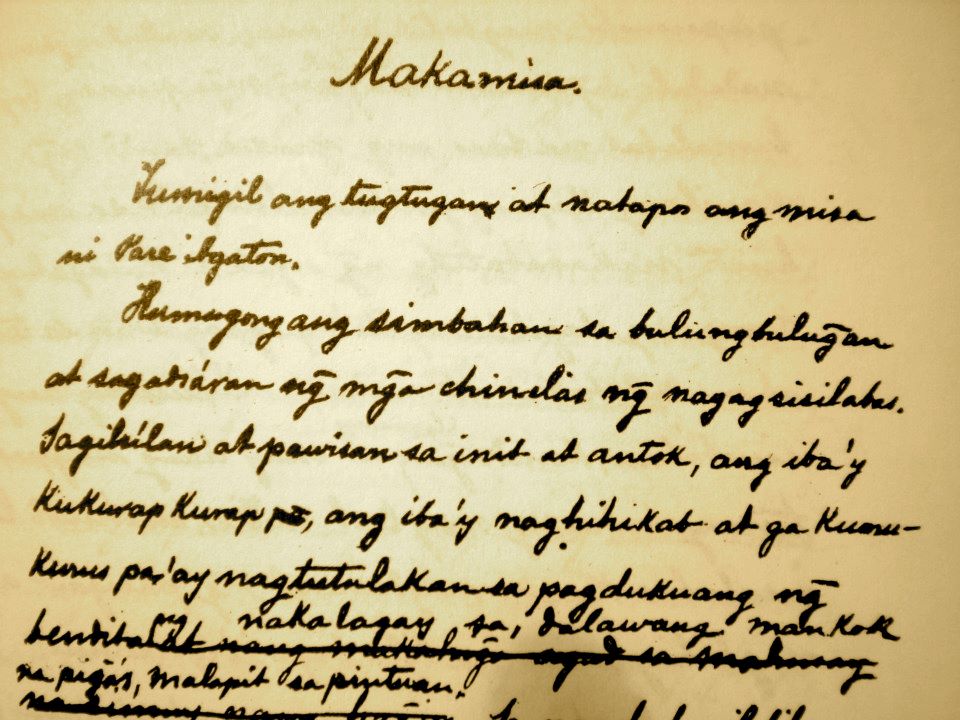 Makamisa.
Tumigil ang tugtugan at natapos ang misa
ni Pare Agaton.
Humugong ang simbahan sa bulungbulug̃an
at sagadsáran ng̃ mg̃a chinelas ng̃ nagagsisilabas.
Sagilsílan at pawisan sa init at antok, ang iba'y
kukurap kurap pa, ang iba'y naghihikab at ga kumu-
kurus pa'ay nagtutulakan sa pagdukuang ng̃
ng nakalagay sa, dalawang mankok
bendita at nang makahig̃a agad sa mahusay
na pigás, malapit sa pintuan.